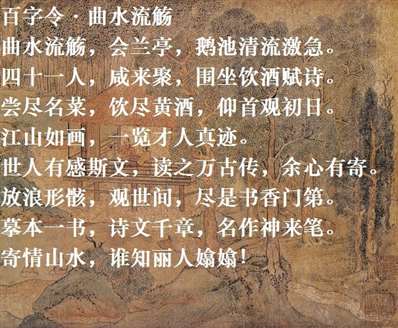 百字令·曲水流觞
曲水流觞，会兰亭，鹅池清流激急。
四十一人，咸来聚，围坐饮酒赋诗。
尝尽名菜，饮尽黄酒，仰首观初日。
江山如画，一览才人真迹。
世人有感斯文，读之万古传，余心有寄。
放浪形骸，观世间，尽是书香门第。
摹本一书，诗文千章，名作神来笔。
寄情山水，谁知丽人嫋嫋！